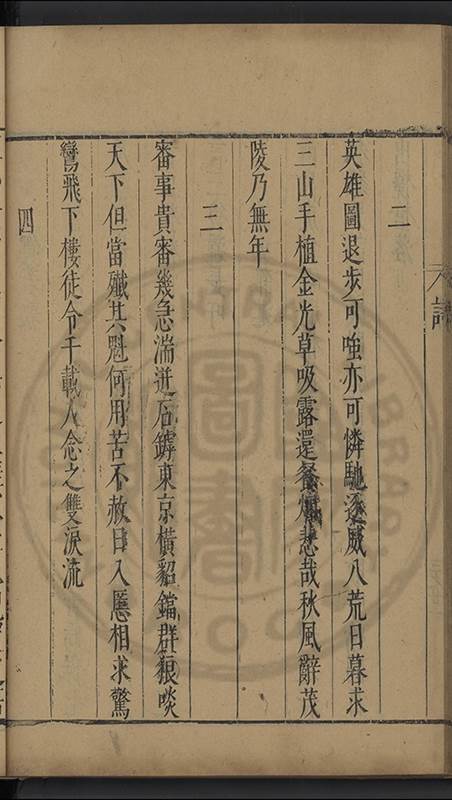 二
英雄圖退步可嗤亦可憐馳逐威八荒日暮求
三山手植金光草吸露還餐悲哉秋風辭茂
陵乃無年
三
審事貴審幾急湍迸石鏬東京橫貂鐺群猰啖
天下但當殲其魁何用苦不赦日入慝相求驚
鸞飛下樓徒令千載人念之雙淚流
四